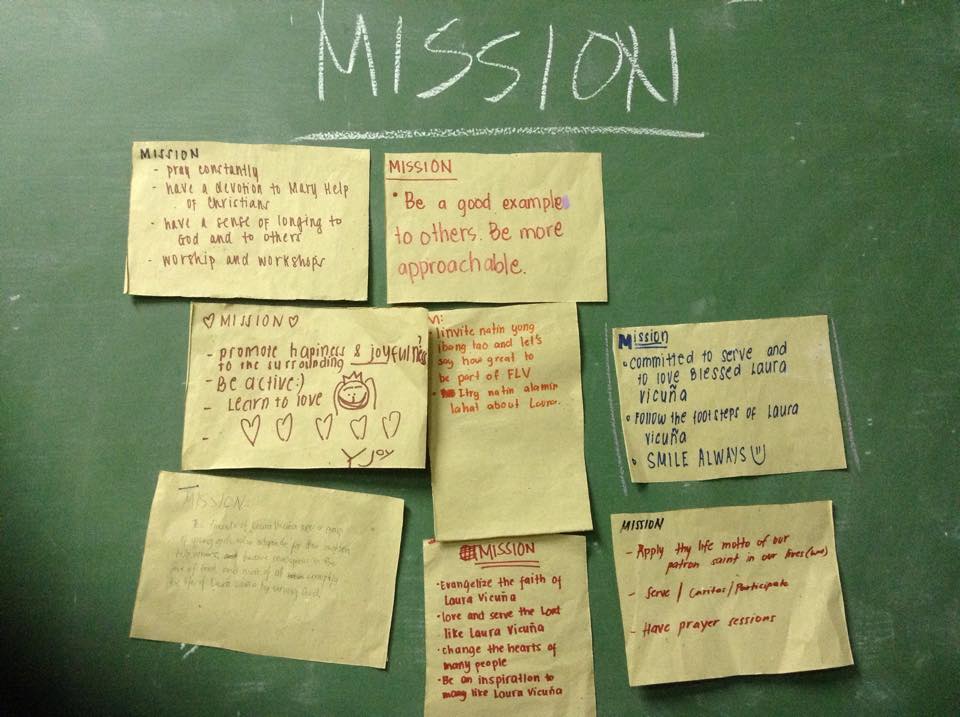 MISSION
MISSION
- pray constantly
- have a devotion to Mary Help
of Christians
- have a sense of longing to
God and to others
- worship and workshops
MISSION
• Be a good example
to others. Be more
approachable.
♡ MISSION ♡
- promote hapiness & joyfulness
to the surrounding
- Be active:)
- Learn to love
-
Y JOY
N:
• Iinvite natin yong
ibang tao and let's
say how great to
be part of FLV
• Itry natin alamin
lahat about Laura.
Mission
• committed to serve and
to love Blessed Laura
Vicuña
• Follow the footsteps of Laura
Vicuña
• SMILE ALWAYS
MISSION:
of Laura Vicuña
the life of Laura Vicuña by serving God.
MISSION
• Evangelize the faith of
Laura Vicuña
• love and serve the Lord
like Laura Vicuña
• change the hearts of
many people
• Be an inspiration to
many like Laura Vicuña
MISSION
- Apply thy life motto of our
patron saint in our lives
- Serve / Caritas / Participate
- Have prayer sessions